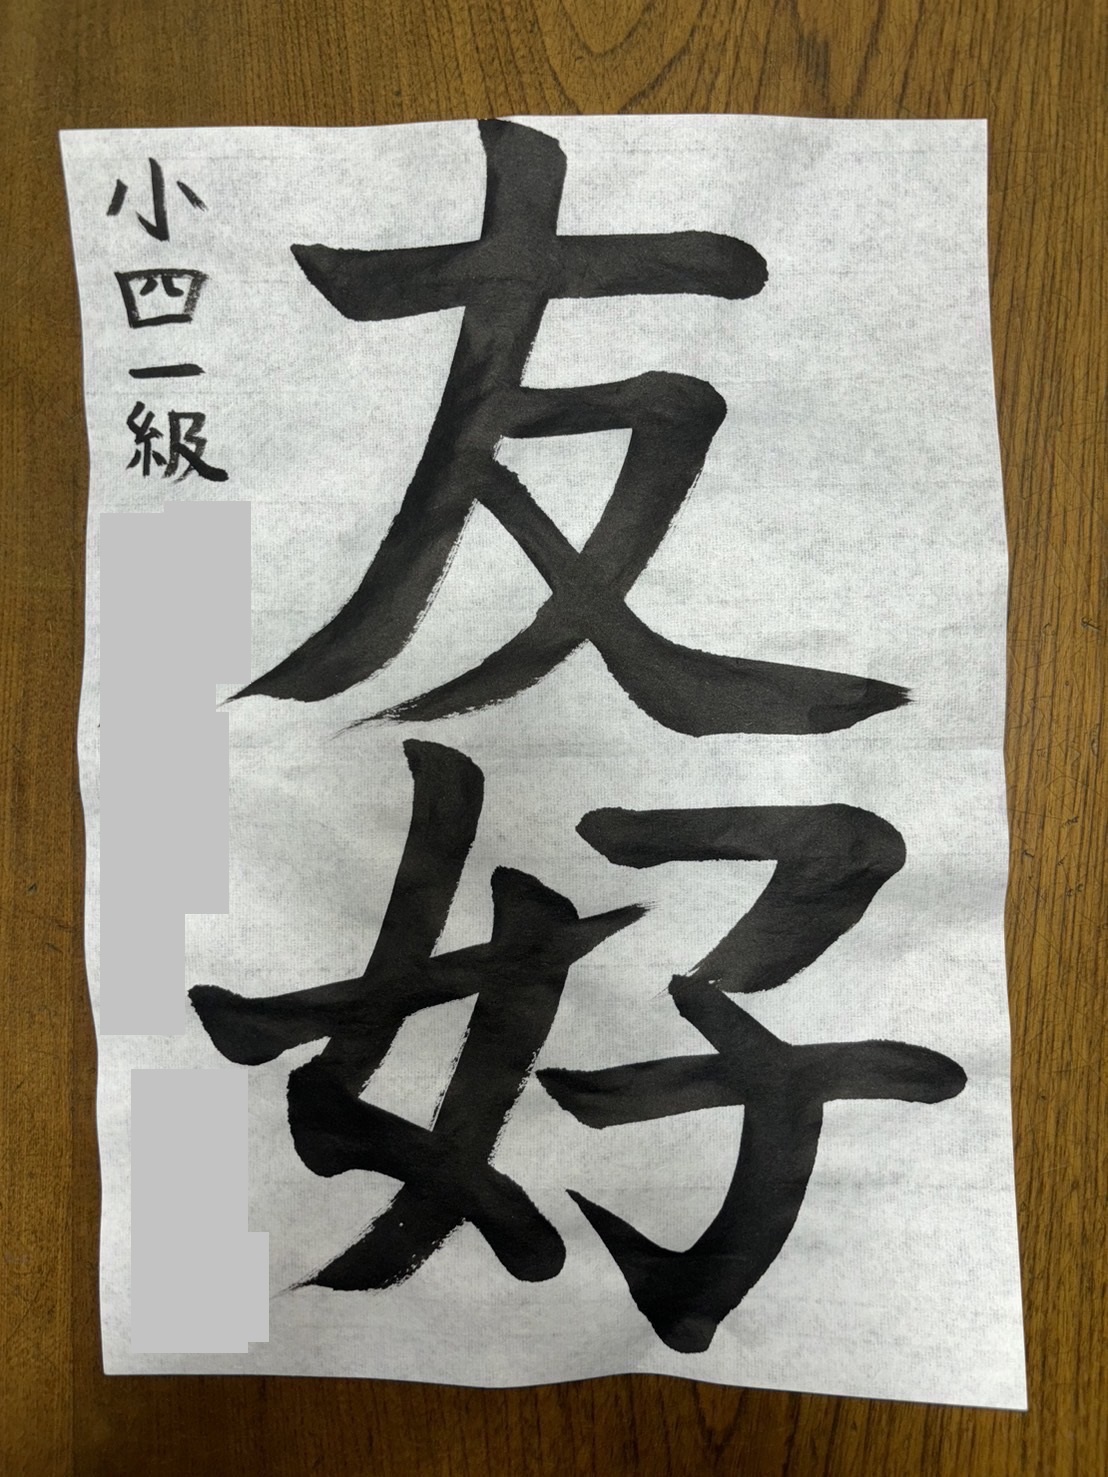 友好
小四一級